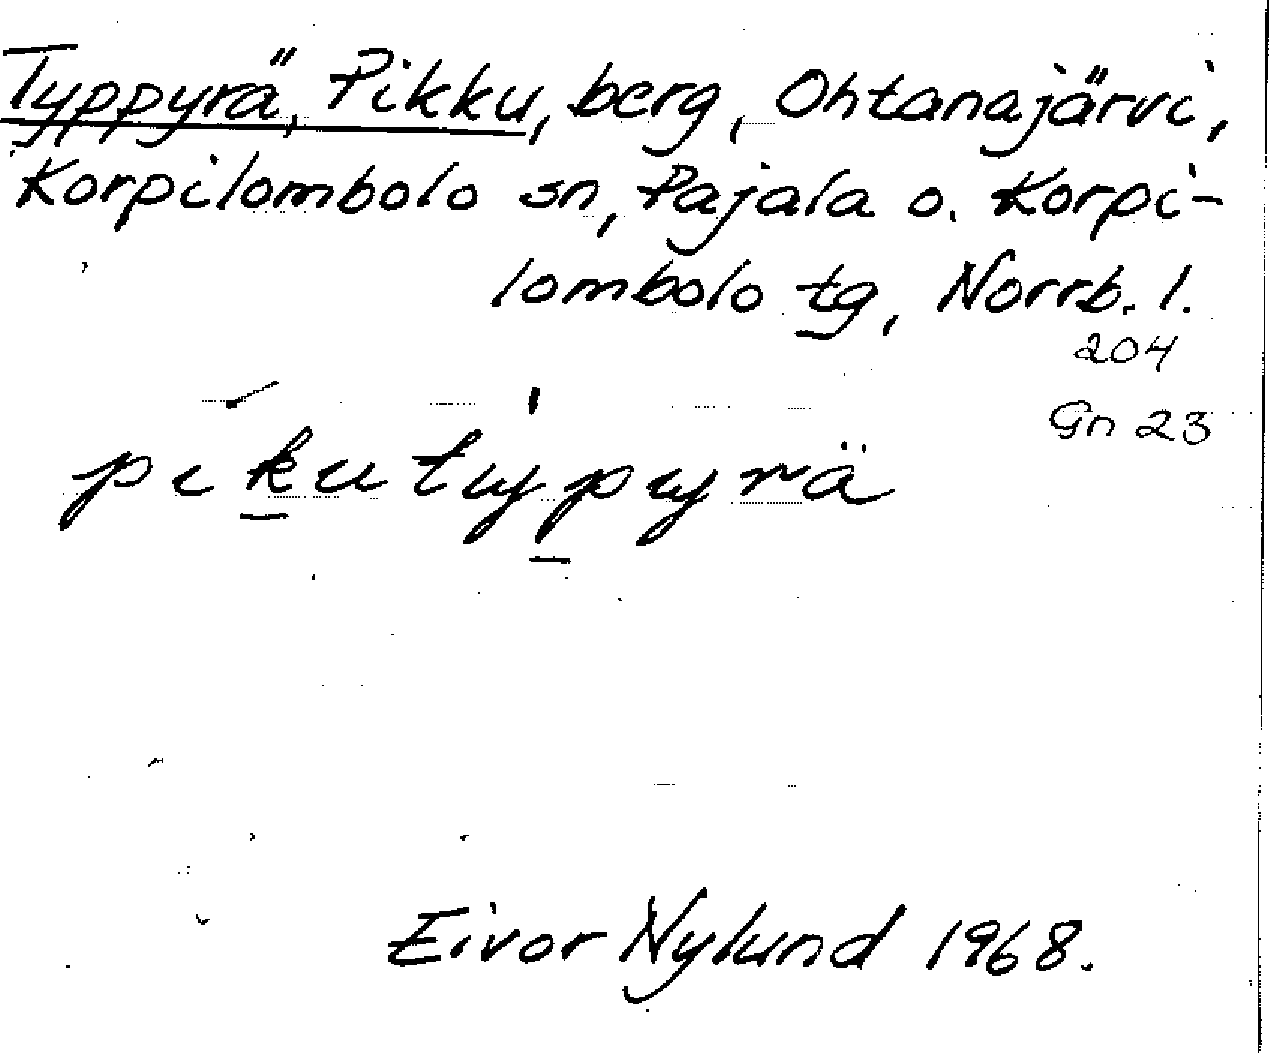 Typpyrä, Pikku, berg, Ohtanajärvi,
Korpilombolo sn, Pajala o. Korpi-
lombolo tg, Norrb. l.
204
Gn 23
pikutypyrä
Eivor Nylund 1968.